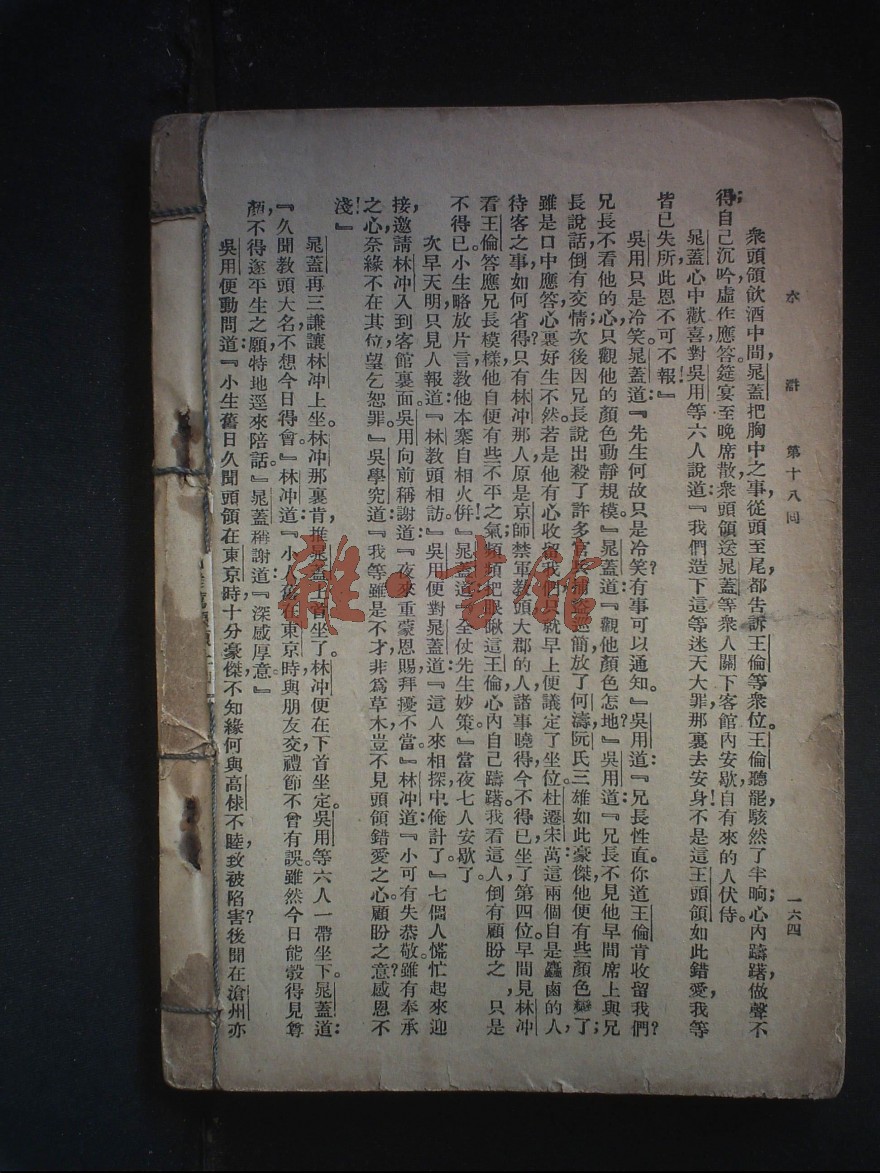 水滸 第十八回 一六四
衆頭領飲酒中間，晁蓋把胸中之事，從頭至尾，都告訴王倫等衆位。王倫聽罷，駭然了半晌；心內躊躇，做聲不
得；自己沉吟，虛作應答。筵宴至晚席散，衆頭領送晁蓋等衆人關下客館內安歇，自有來的人伏侍。
晁蓋心中歡喜，對吳用等六人說道：『我們造下這等迷天大罪，那裏去安身！不是這王頭領如此錯愛，我等
皆已失所，此恩不可不報！』
吳用只是冷笑。晁蓋道：『先生何故只是冷笑？有事可以通知。』吳用道：『兄長性直。你道王倫肯收留我們？
兄長不看他的心，只觀他的顏色動靜規模。』晁蓋道：『觀他顏色怎地？』吳用道：『兄長不見他早間席上與兄
長說話，倒有交情；次後因兄長說出殺了許多官兵捕盜巡簡，放了何濤，阮氏三雄如此豪傑，他便有些顏色變了；
雖是口中應答，心裏好生不然。若是他有心收留我們，只就早上便議定了坐位。杜遷宋萬這兩個自是麤鹵的人，
待客之事如何省得？只有林冲那人原是京師禁軍教頭，大郡的人，諸事曉得，今不得已，坐了第四位。早間見林冲
看王倫答應兄長模樣，他自便有些不平之氣，頻頻把眼瞅這王倫，心內自己躊躇。我看這人倒有顧盼之，只是
不得已。小生略放片言，教他本寨自相火併！』晁蓋道：『全仗先生妙策。』當夜七人安歇了。
次早天明，只見人報道：『林教頭相訪。』吳用便對晁蓋道：『這人來相探，中俺計了。』七個人慌忙起來迎
接，邀請林冲入到客館裏面。吳用向前稱謝道：『夜來重蒙恩賜，拜擾不當。』林冲道：『小可有失恭敬。雖有奉承
之心，奈緣不在其位，望乞恕罪。』吳學究道：『我等雖是不才，非爲草木，豈不見頭領錯愛之心，顧盼之意？感恩不
淺！』
晁蓋再三謙讓林冲上坐。林冲那裏肯，推晁蓋上首坐了。林冲便在下首坐定。吳用等六人一帶坐下。晁蓋道：
『久聞教頭大名，不想今日得會。』林冲道：『小人舊在東京時，與朋友交，禮節不曾有誤。雖然今日能彀得見尊
顏，不得遂平生之願，特地逕來陪話。』晁蓋稱謝道：『深感厚意。』
吳用便動問道：『小生舊日久聞頭領在東京時，十分豪傑，不知緣何與高俅不睦，致被陷害？後聞在滄州亦
雜·書館